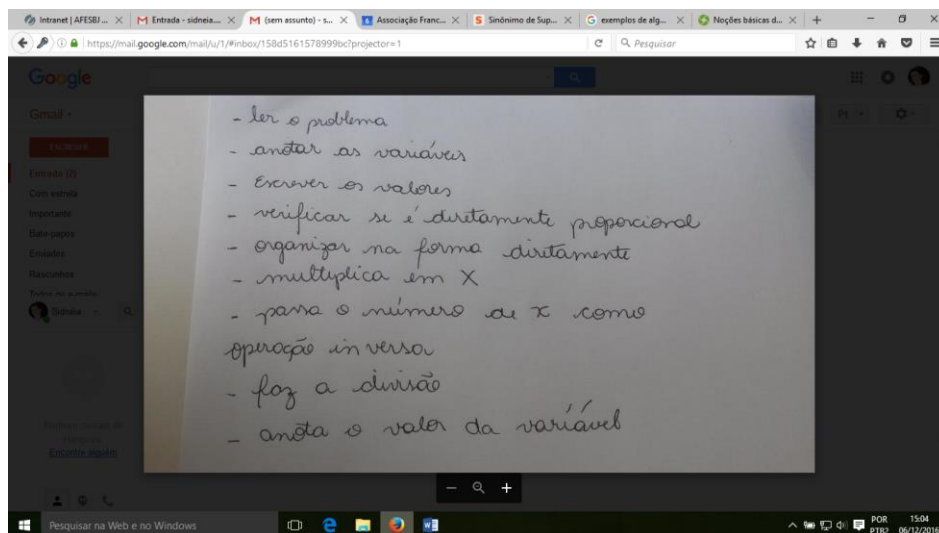 Intranet | AFESBJ ...
Entrada - sidneia....
(sem assunto) - s...
Associação Franc...
Sinônimo de Sup...
exemplos de alg...
Noções básicas d...
https://mail.google.com/mail/u/1/#inbox/158d5161578999bc?projector=1
Pesquisar
Google
Gmail
Pt
ESCREVER
Entrada (2)
Com estrela
Importante
Bate-papos
Enviados
Rascunhos
Sidnéia
- ler o problema
- anotar as variáveis
- Escrever os valores
- verificar se é diretamente proporcional
- organizar na forma diretamente
- multiplica em X
- passa o número de x como
operação inversa
- faz a divisão
- anota o valor da variável
Encontre alguém
Pesquisar na Web e no Windows
POR
PTB2
15:04
06/12/2016